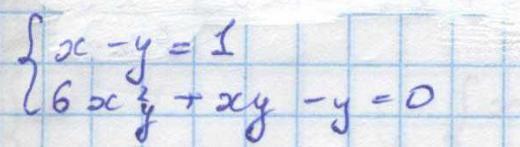 { x - y = 1
6x²y + xy - y = 0